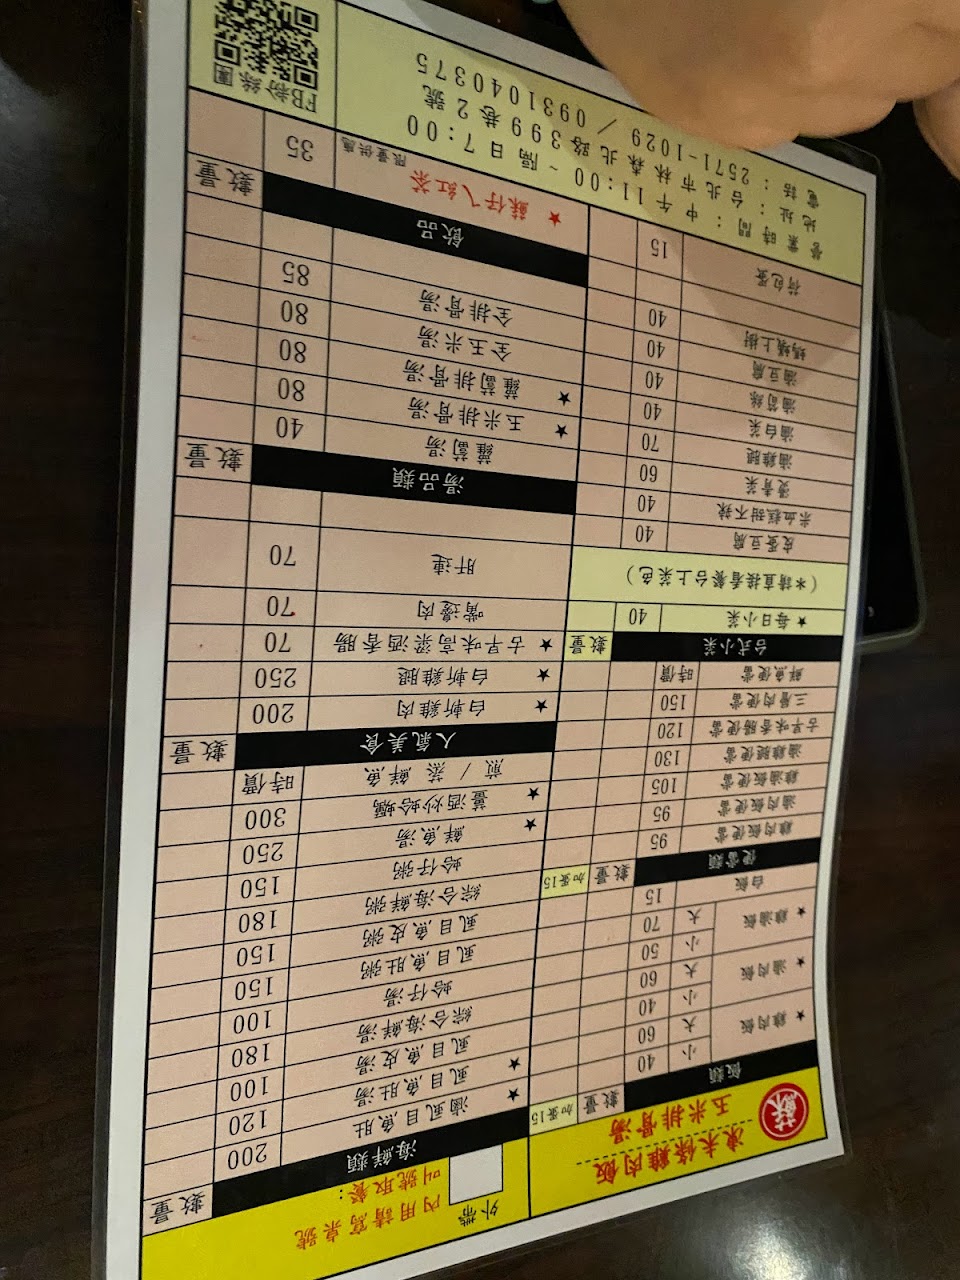 蘇
凍未條雞肉飯
玉米排骨湯
飯類 數量 加蛋15
★ 雞肉飯 小 40
大 60
★ 滷肉飯 小 40
大 60
★ 雞油飯 小 50
大 70
白飯 15
便當類 數量 加蛋15
雞肉飯便當 95
滷肉飯便當 95
雞油飯便當 105
滷雞腿便當 130
古早味香腸便當 120
三層肉便當 150
鮮魚便當 時價
台式小菜 數量
★每日小菜 40
(＊請直接看餐台上菜色)
皮蛋豆腐 40
米血糕甜不辣 40
燙青菜 60
滷雞腿 70
滷白菜 40
滷筍絲 40
滷豆腐 40
螞蟻上樹 40
荷包蛋 15
外帶
內用請寫桌號
叫號取餐：
海鮮類 數量
★ 滷虱目魚肚 200
★ 虱目魚肚湯 120
虱目魚皮湯 100
綜合海鮮湯 180
蛤仔湯 100
虱目魚肚粥 150
虱目魚皮粥 150
綜合海鮮粥 180
蛤仔粥 150
★ 鮮魚湯 250
★ 薑酒炒蛤蠣 300
煎 / 蒸 鮮魚 時價
人氣美食 數量
★ 白斬雞肉 200
★ 白斬雞腿 250
★ 古早味高粱酒香腸 70
嘴邊肉 70
肝連 70
湯品類 數量
蘿蔔湯 40
★ 玉米排骨湯 80
★ 蘿蔔排骨湯 80
全玉米湯 80
全排骨湯 85
飲品 數量
★ 蘇仔ㄟ紅茶 限量供應 35
營業時間：中午11:00 ~ 隔日7:00
地址：台北市林森北路399巷2號
電話：2571-1029 / 0931040375
FB粉絲團